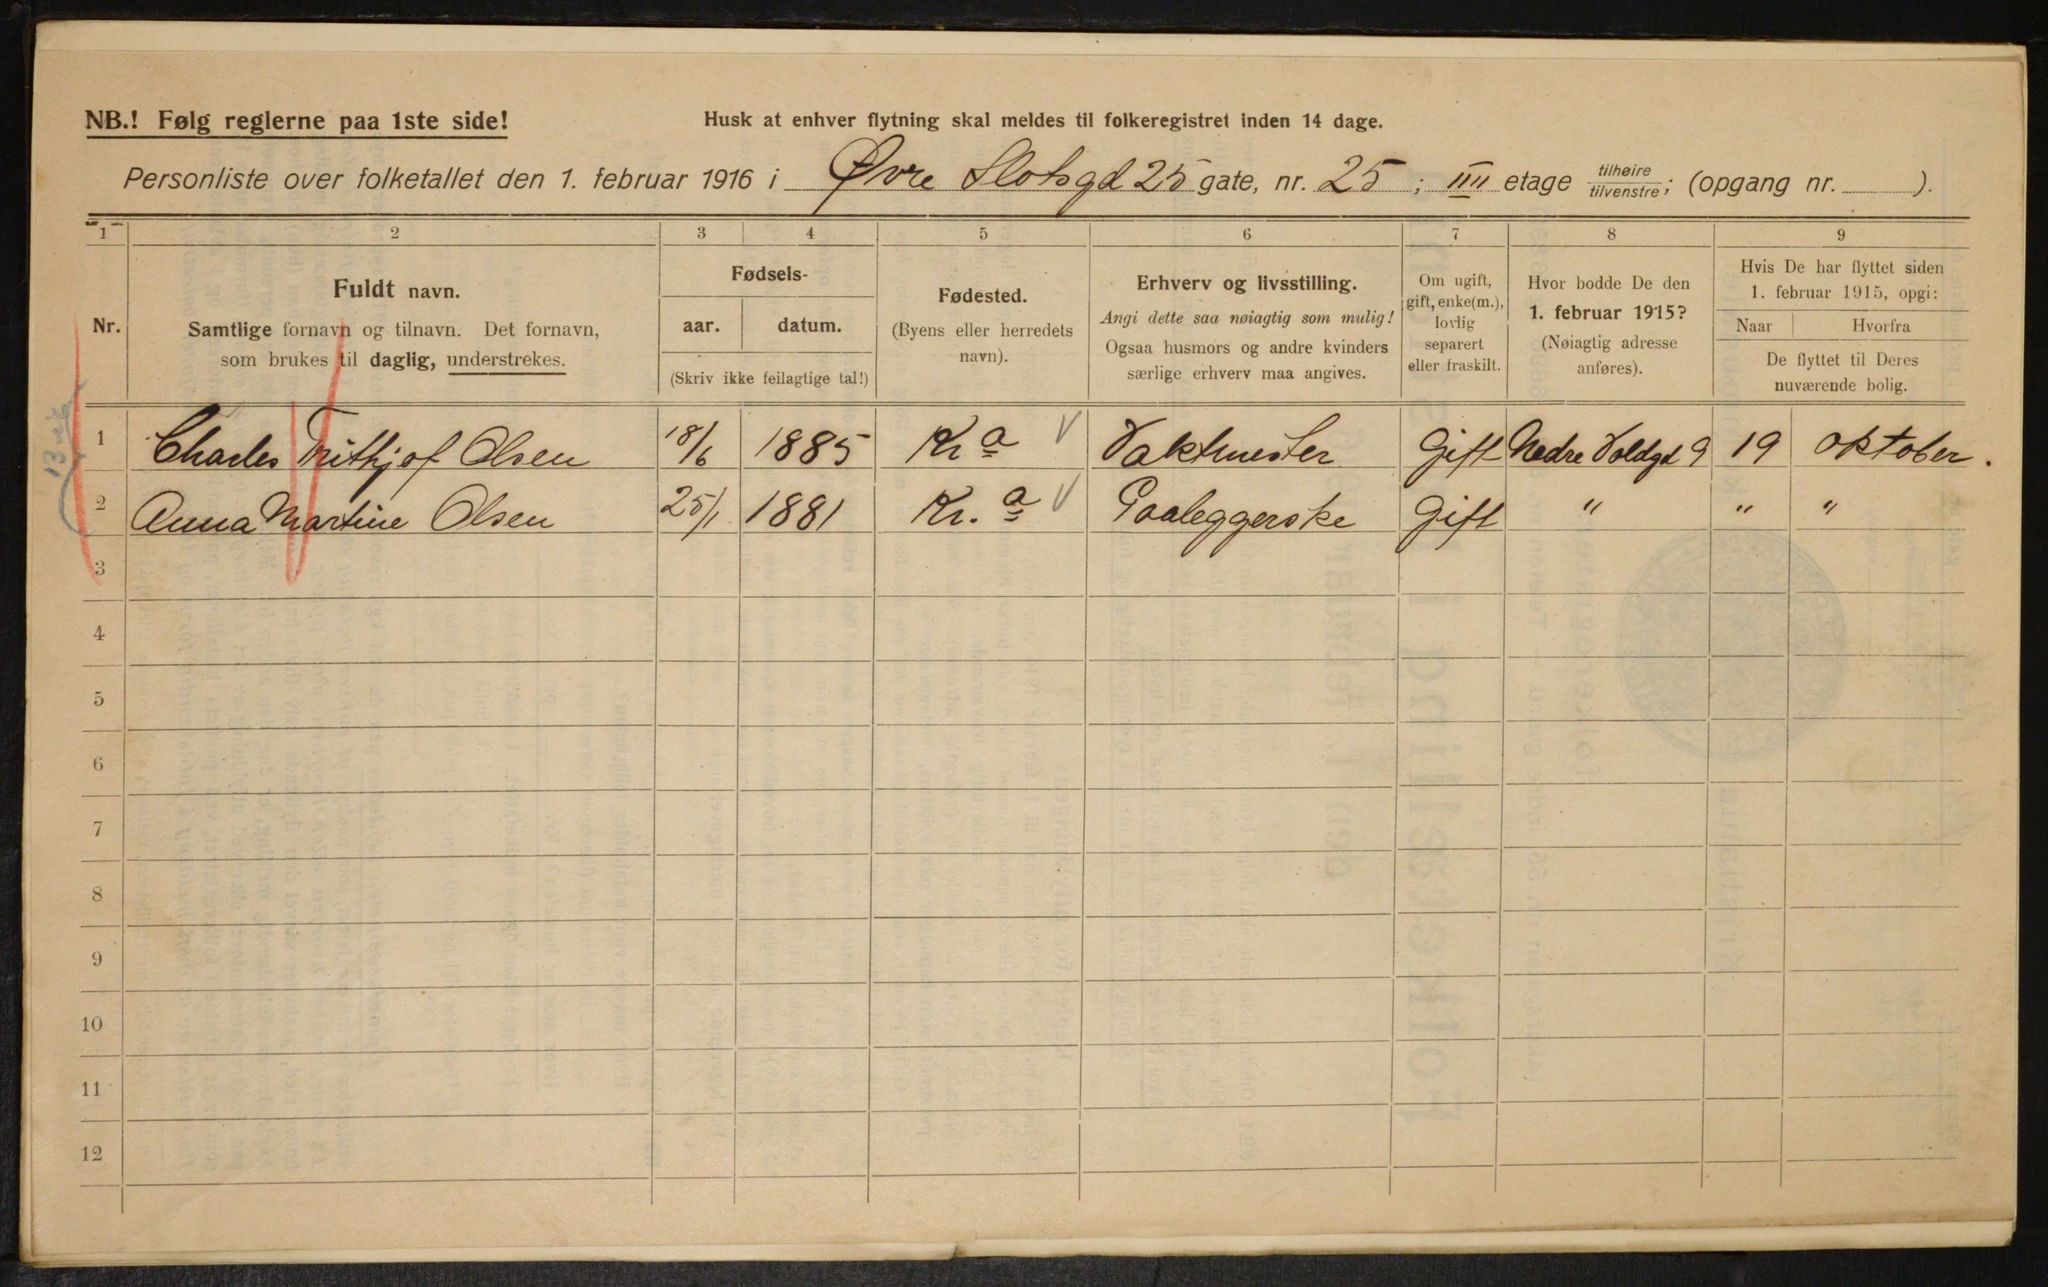 NB.! Følg reglerne paa 1ste side!
Husk at enhver flytning skal meldes til folkeregistret inden 14 dage.
Personliste over folketallet den 1. februar 1916 i Øvre Slotsgd 25 gate, nr. 25; IIII etage tilhøire tilvenstre; (opgang nr. ).
1 2 3 4 5 6 7 8 9
Nr.
Fuldt navn.
Samtlige fornavn og tilnavn. Det fornavn,
som brukes til daglig, understrekes.
Fødsels-
aar. datum.
(Skriv ikke feilagtige tal!)
Fødested.
(Byens eller herredets
navn).
Erhverv og livsstilling.
Angi dette saa nøiagtig som mulig!
Ogsaa husmors og andre kvinders
særlige erhverv maa angives.
Om ugift,
gift, enke(m.),
lovlig
separert
eller fraskilt.
Hvor bodde De den
1. februar 1915?
(Nøiagtig adresse
anføres).
Hvis De har flyttet siden
1. februar 1915, opgi:
Naar Hvorfra
De flyttet til Deres
nuværende bolig.
1 Charles Frithjof Olsen 18/6 1885 Kra Vaktmester Gift Nedre Voldgd 9 19 oktober.
2 Anna Martine Olsen 25/1 1881 Kr.a Paaleggerske Gift " " "
3
4
5
6
7
8
9
10
11
12